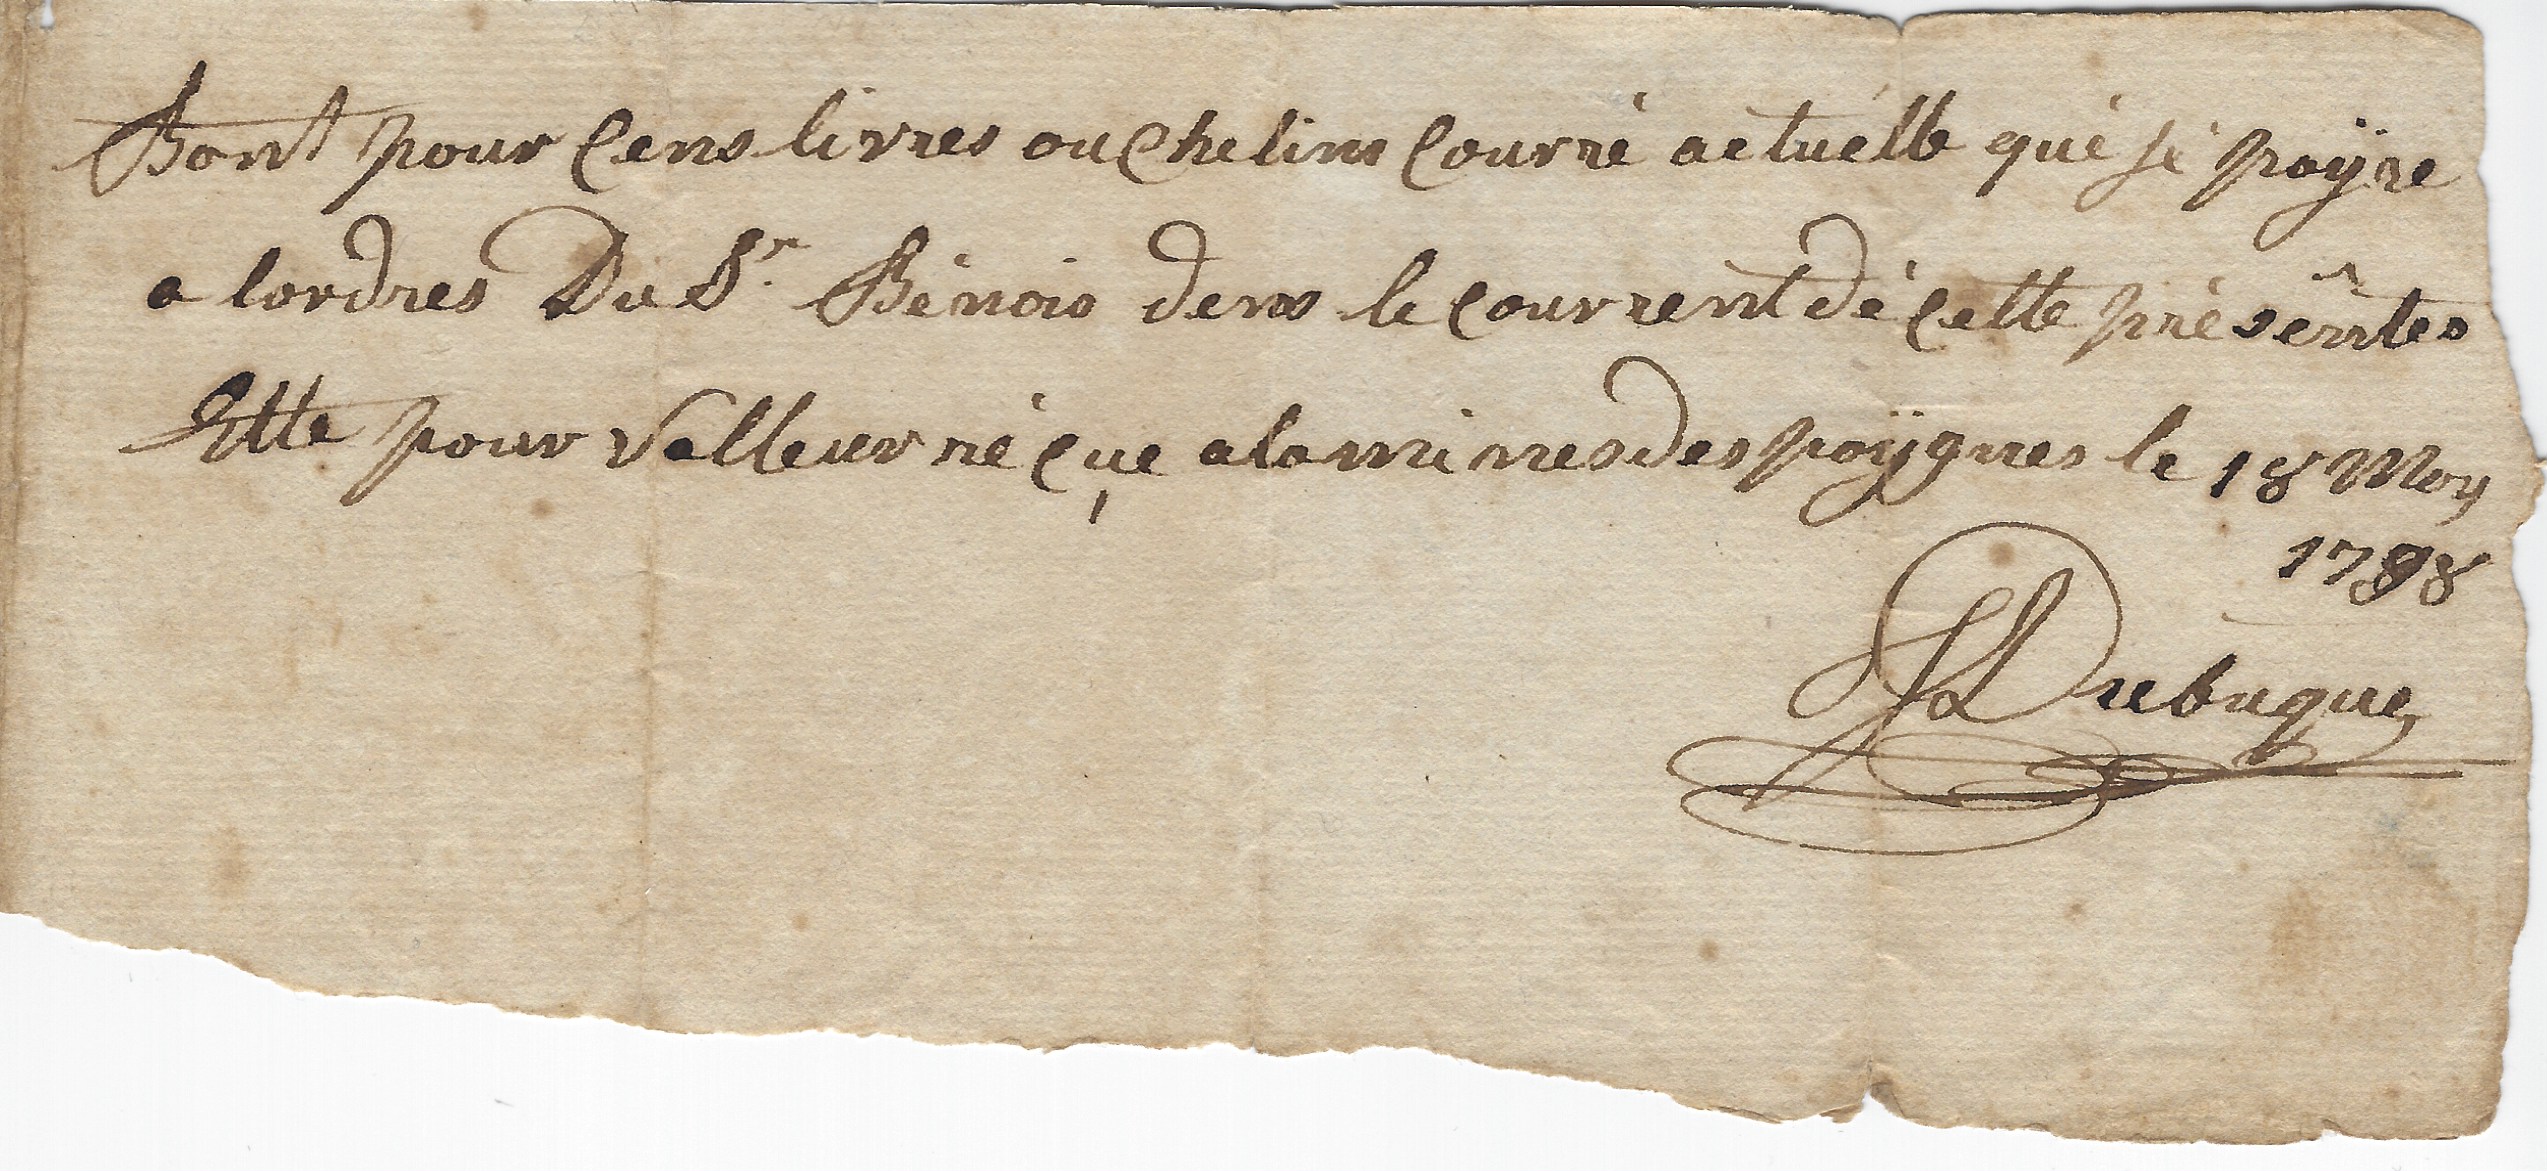 Bont pour Cens livres ou Chelins Courré actuelle qué jé payïre
a lordres Du Sr. Bénois dens le Courrent dé Cette présêntes
Ette pour valleur réçue a la mines des poÿgnes le 18 May
1798
J Dubuque